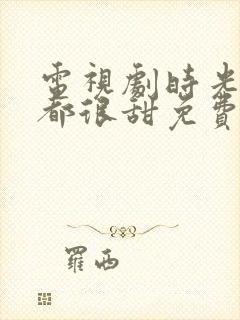 電視劇時光
都很甜免費
羅西